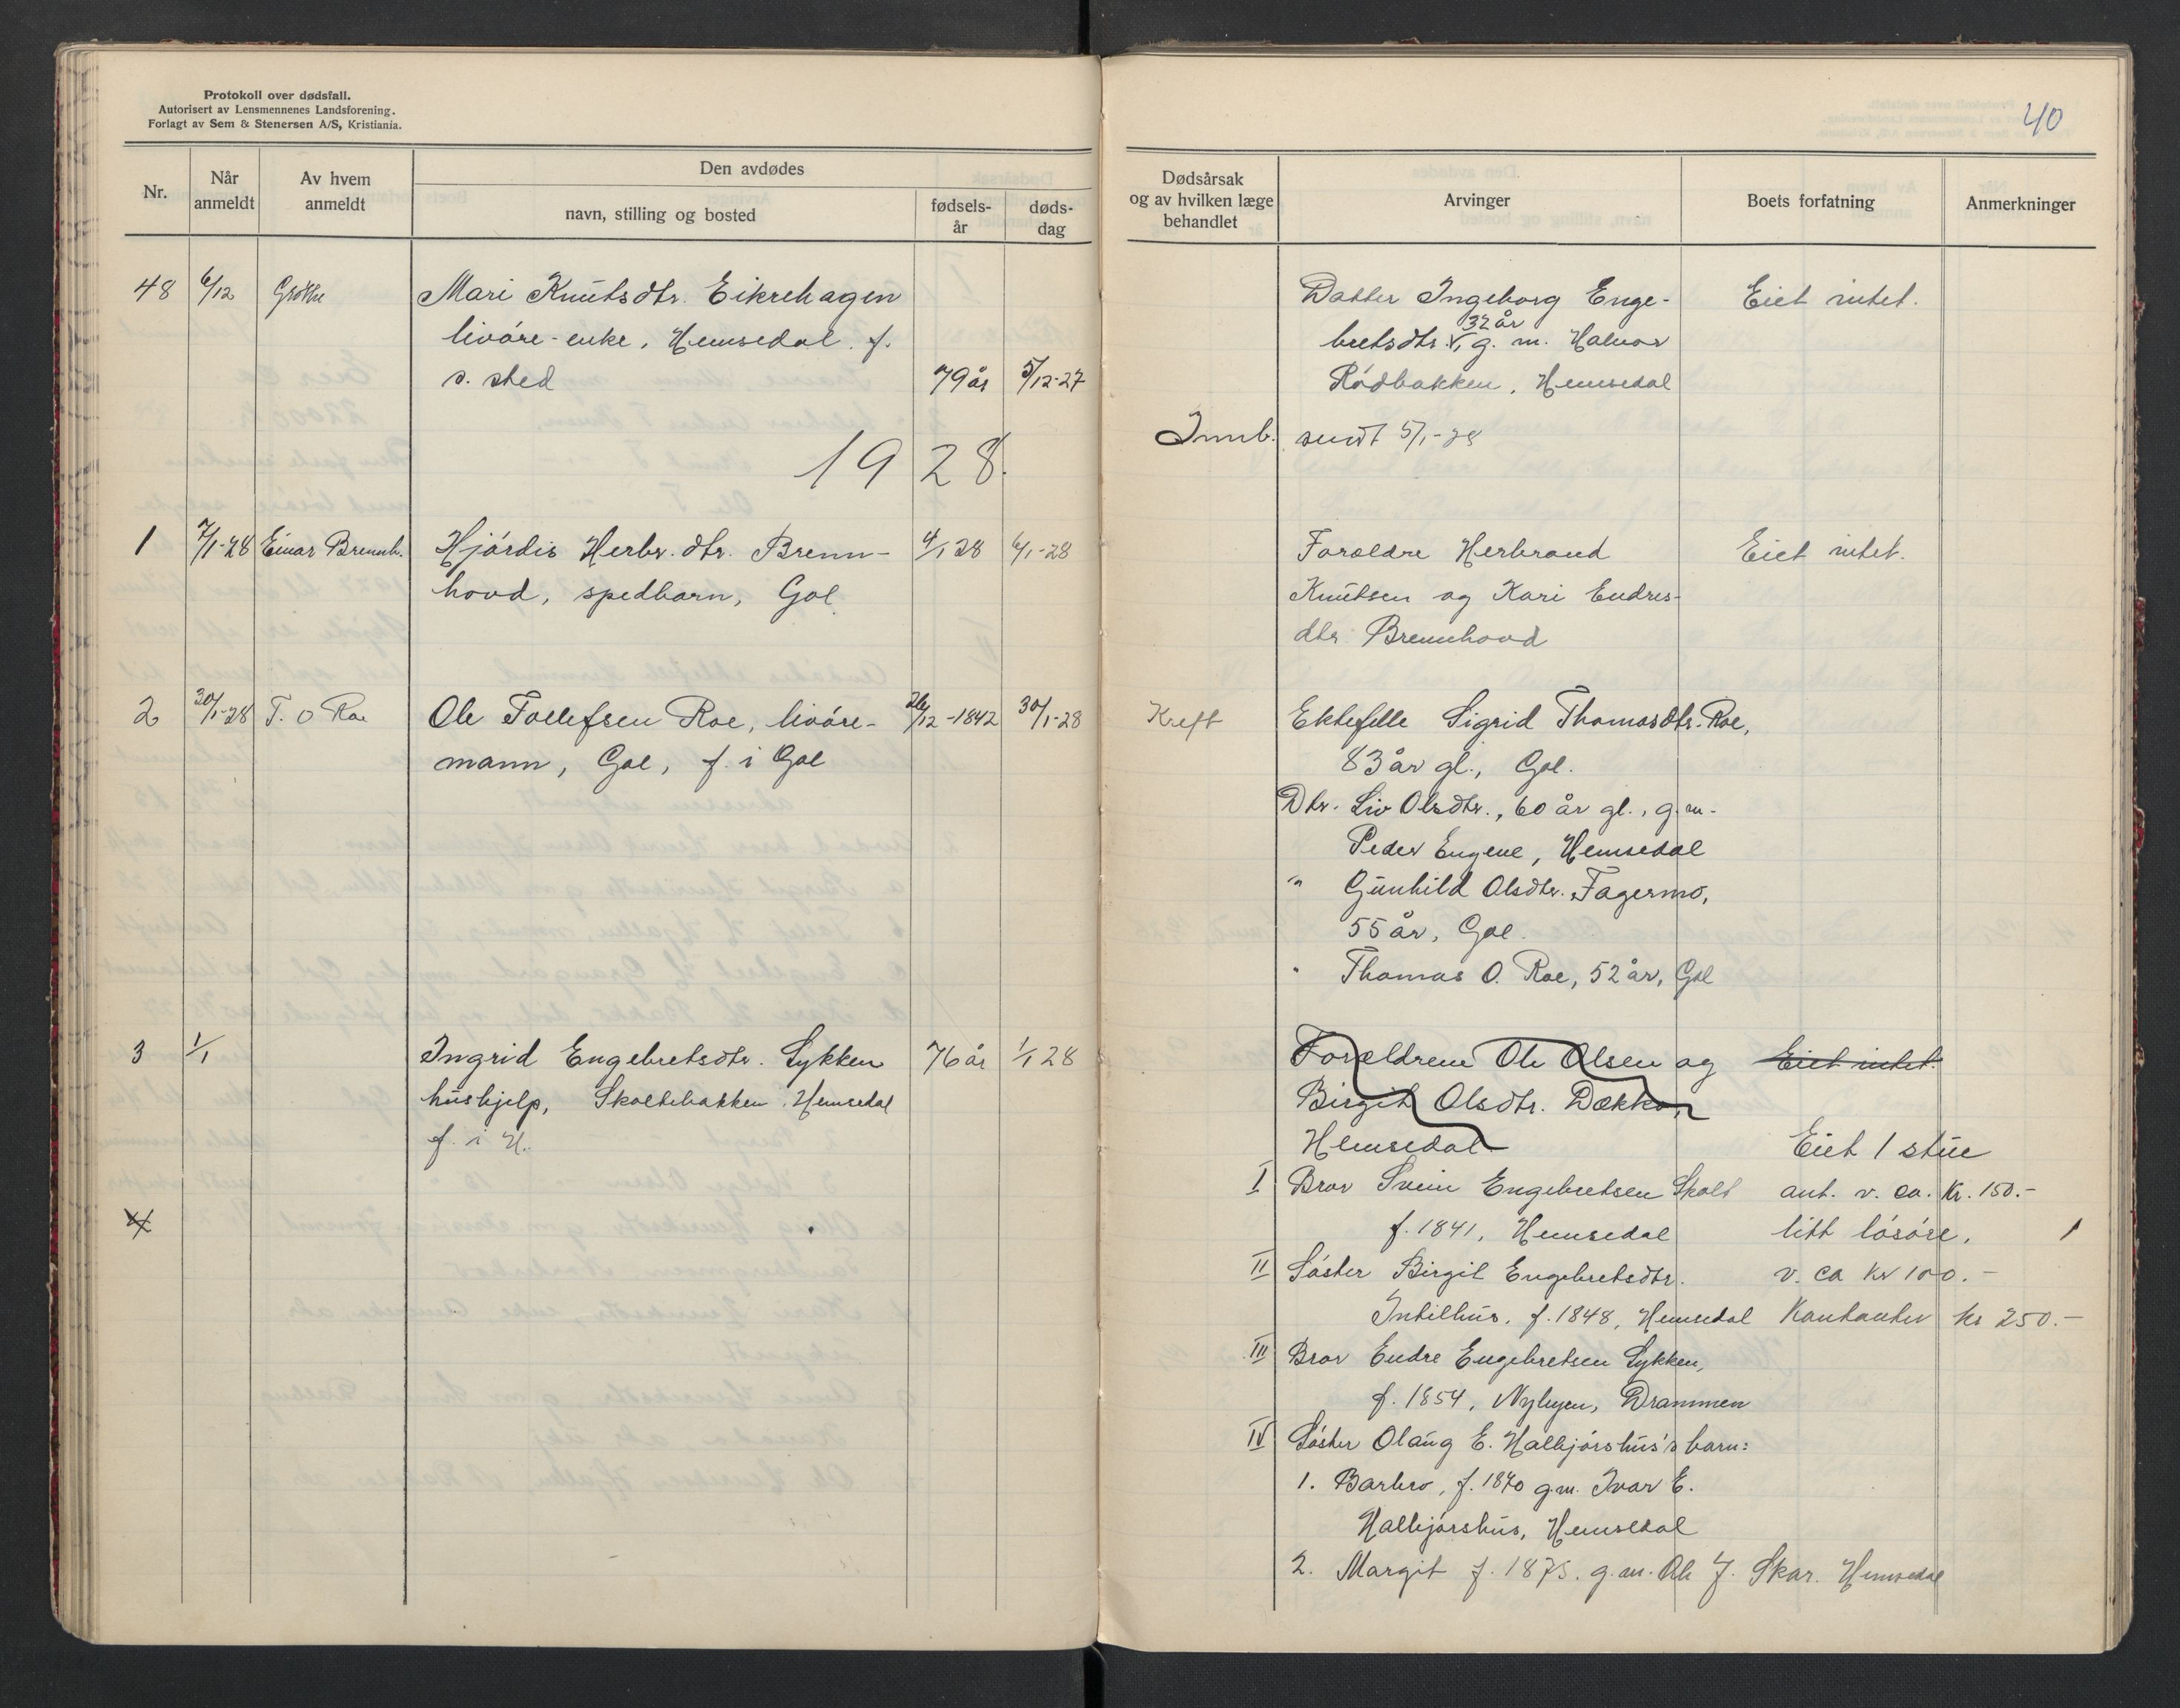 Protokoll over dødsfall.
Autorisert av Lensmennenes Landsforening.
Forlagt av Sem & Stenersen A/S, Kristiania.
40
Nr.
Når anmeldt
Av hvem anmeldt
Den avdødes
navn, stilling og bosted
fødsels-år
døds-dag
Dødsårsak og av hvilken læge behandlet
Arvinger
Boets forfatning
Anmerkninger
48 6/12 Mari Knutsdtr. Eikrehagen
livøre-enke, Hemsedal f.
s. sted 79 år 5/12-27
Datter Ingeborg Enge- Eiet intet.
32 år
bretsdtr. g. m. Halvor
Rødbakken, Hemsedal
Innb. sendt 5/1-28
1928.
1 7/1-28 Einar Brennh. Hjördis Herbr. dtr. Brenn- 4/1 28 6/1-28
hovd, spedbarn, Gol
Forældre Herbrand Eiet intet.
Knutsen og Kari Endres-
dtr. Brennhovd
2 30/1-28 T. O Roe Ole Tollefsen Roe, livøre- 26/12-1842 30/1-28
mann, Gol, f. i Gol
Kreft Ektefelle Sigrid Thomasdtr. Roe,
83 år gl., Gol.
Dtr. Liv Olsdtr., 60 år gl., g. m.
Peder Engene, Hemsedal
" Gunhild Olsdtr. Fagermo,
55 år, Gol.
" Thomas O. Roe, 52 år, Gol
3 1/1 Ingrid Engebretsdtr. Lykken 76 år 1/1 28
hushjelp, Skoltebakken Hemsedal
f. i H.
4
Forældrene Ole Olsen og Eiet intet.
Birgit Olsdtr. Dekko,
Hemsedal Eiet 1 stue
I Bror Svein Engebretsen Skolt ant. v. ca. Kr. 150.-
f. 1841, Hemsedal litt løsøre,
II Søster Birgit Engebretsdtr. v. ca kr 100.-
Intilhus, f. 1848, Hemsedal Kontanter kr 250.-
III Bror Endre Engebretsen Lykken,
f. 1854, Nybyen, Drammen
IV Søster Olaug E. Halbjørshus's barn:
1. Barbro, f. 1870 g.m. Ivar E.
Halbjørshus, Hemsedal
2. Margit f. 1875. g.m. Ole J. Skar. Hemsedal